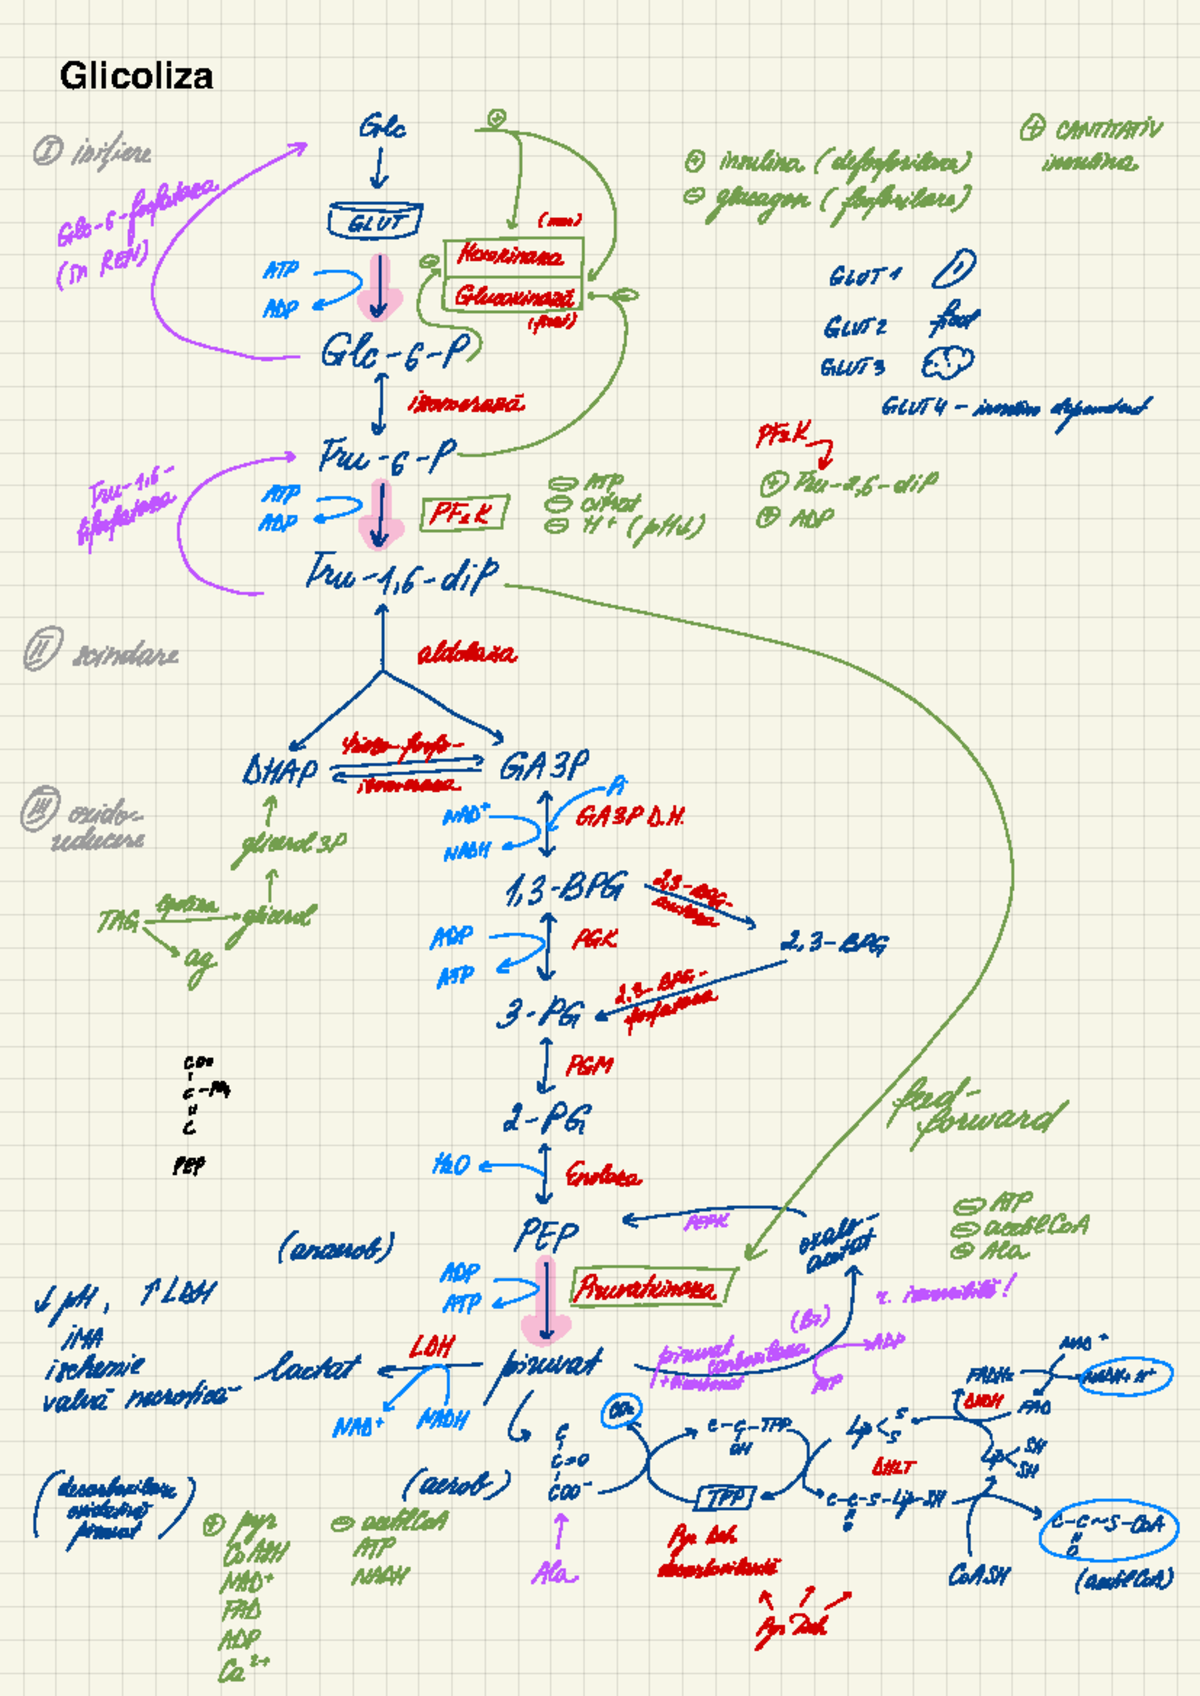 Glicoliza
I inițiere
Glc
+
+ CANTITATIV
insulina
+ insulina (defosforilare)
- glucagon (fosforilare)
Glc-6-fosfataza
(în REN)
GLUT
Hexokinaza
Glucokinază
(ficat)
-
-
ATP
ADP
GLUT 1
GLUT 2 ficat
GLUT 3
GLUT 4 - insulino dependent
Glc-6-P
izomerază
Fru-6-P
Fru-1,6-
ATP
ADP
PF1K
- ATP
- citrat
- H+ (pH↓)
PF2K
+ Fru-2,6-diP
+ ADP
Fru-1,6-diP
II scindare
aldolaza
DHAP
trioso-fosfo-
izomeraza
GA3P
III oxido-
reducere
glicerol 3P
NAD+
NADH
Pi
GA3P D.H.
1,3-BPG
2,3-BPG-
mutaza
2,3-BPG
TAG
lipaza
glicerol
ag
ADP
ATP
PGK
3-PG
2,3-BPG-
fosfataza
COO-
C
C
PEP
PGM
2-PG
feed-
forward
H2O
Enolaza
PEP
PEPK
oxalo-
acetat
- ATP
- acetil CoA
- Ala
(anaerob)
ADP
ATP
Piruvatkinaza
r. ireversibilă!
↓ pH, ↑ LDH
IMA
ischemie
valvă necrotică
lactat
LDH
NAD+
NADH
piruvat
piruvat carboxilaza
(B7)
+ bicarbonat
ATP
ADP
NAD+
NADH+H+
FADH2
FAD
DHDH
CO2
C
C=O
COO-
C-C-TPP
OH
TPP
Lip S
S
DHLT
Lip SH
SH
C-C-S-Lip-SH
O
C-C~S-CoA
O
(acetil CoA)
CoASH
(aerob)
(decarboxilare
oxidativă
piruvat)
+ pyr
CoASH
NAD+
FAD
ADP
Ca2+
- acetil CoA
ATP
NADH
Ala
Pyr Deh
decarboxilantă
Pyr Deh